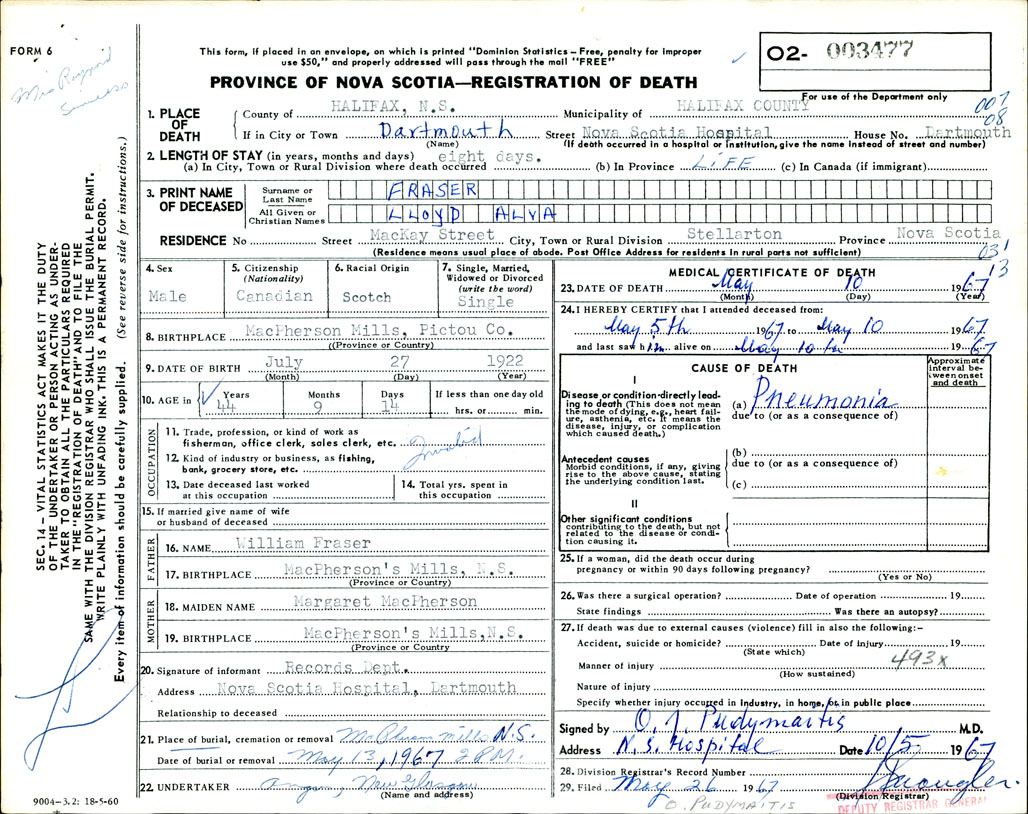 FORM 6
This form, if placed in an envelope, on which is printed "Dominion Statistics – Free, penalty for improper
use $50," and properly addressed will pass through the mail "FREE"
PROVINCE OF NOVA SCOTIA—REGISTRATION OF DEATH
O2- 003477
For use of the Department only
007
08
SEC. 14 – VITAL STATISTICS ACT MAKES IT THE DUTY
OF THE UNDERTAKER OR PERSON ACTING AS UNDER-
TAKER TO OBTAIN ALL THE PARTICULARS REQUIRED
IN THE "REGISTRATION OF DEATH" AND TO FILE THE
SAME WITH THE DIVISION REGISTRAR WHO SHALL ISSUE THE BURIAL PERMIT.
WRITE PLAINLY WITH UNFADING INK. THIS IS A PERMANENT RECORD.
Every item of information should be carefully supplied. (See reverse side for instructions.)
1. PLACE OF DEATH
County of HALIFAX, N.S. Municipality of HALIFAX COUNTY
If in City or Town Dartmouth Street Nova Scotia Hospital House No. Dartmouth
(Name) (If death occurred in a hospital or institution, give the name instead of street and number)
2. LENGTH OF STAY (in years, months and days)
(a) In City, Town or Rural Division where death occurred eight days. (b) In Province LIFE (c) In Canada (if immigrant)
3. PRINT NAME OF DECEASED
Surname or Last Name FRASER
All Given or Christian Names LLOYD ALVA
RESIDENCE No Street MacKay Street City, Town or Rural Division Stellarton Province Nova Scotia
(Residence means usual place of abode. Post Office Address for residents in rural parts not sufficient)
031
13
4. Sex
Male
5. Citizenship (Nationality)
Canadian
6. Racial Origin
Scotch
7. Single, Married, Widowed or Divorced (write the word)
Single
8. BIRTHPLACE MacPherson Mills, Pictou Co.
((Province or Country)
9. DATE OF BIRTH July 27 1922
(Month) (Day) (Year)
10. AGE in Years Months Days If less than one day old
44 9 14 hrs. or min.
OCCUPATION
11. Trade, profession, or kind of work as
fisherman, office clerk, sales clerk, etc. Invalid
12. Kind of industry or business, as fishing,
bank, grocery store, etc.
13. Date deceased last worked at this occupation
14. Total yrs. spent in this occupation
15. If married give name of wife
or husband of deceased
FATHER
16. NAME William Fraser
17. BIRTHPLACE MacPherson's Mills, N.S.
(Province or Country)
MOTHER
18. MAIDEN NAME Margaret MacPherson
19. BIRTHPLACE MacPherson's Mills, N.S.
(Province or Country
20. Signature of informant Records Dept.
Address Nova Scotia Hospital, Dartmouth
Relationship to deceased
21. Place of burial, cremation or removal McPherson Mills N.S.
Date of burial or removal May 13, 1967 2 P.M.
22. UNDERTAKER New Glasgow
(Name and address)
9004-3.2: 18-5-60
MEDICAL CERTIFICATE OF DEATH
23. DATE OF DEATH May 10 1967
(Month) (Day) (Year)
24. I HEREBY CERTIFY that I attended deceased from:
May 5th 1967 to May 10 1967
and last saw him alive on May 10th 1967
CAUSE OF DEATH
Approximate interval be-tween onset and death
I
Disease or condition directly lead-
ing to death (This does not mean
the mode of dying, e.g., heart fail-
ure, asthenia, etc. It means the
disease, injury, or complication
which caused death.)
(a) Pneumonia
due to (or as a consequence of)
Antecedent causes
Morbid conditions, if any, giving
rise to the above cause, stating
the underlying condition last.
(b)
due to (or as a consequence of)
(c)
II
Other significant conditions
contributing to the death, but not
related to the disease or condi-
tion causing it.
25. If a woman, did the death occur during
pregnancy or within 90 days following pregnancy?
(Yes or No)
26. Was there a surgical operation? Date of operation 19
State findings Was there an autopsy?
27. If death was due to external causes (violence) fill in also the following:-
Accident, suicide or homicide? Date of injury 19
(State which)
493x
Manner of injury
(How sustained)
Nature of injury
Specify whether injury occurred in industry, in home, or in public place
Signed by O. J. Pudymaitis M.D.
Address N.S. Hospital Date 10/5 1967
28. Division Registrar's Record Number
29. Filed May 26 1967
(Division Registrar)
DEPUTY REGISTRAR GENERAL
O. PUDYMAITIS